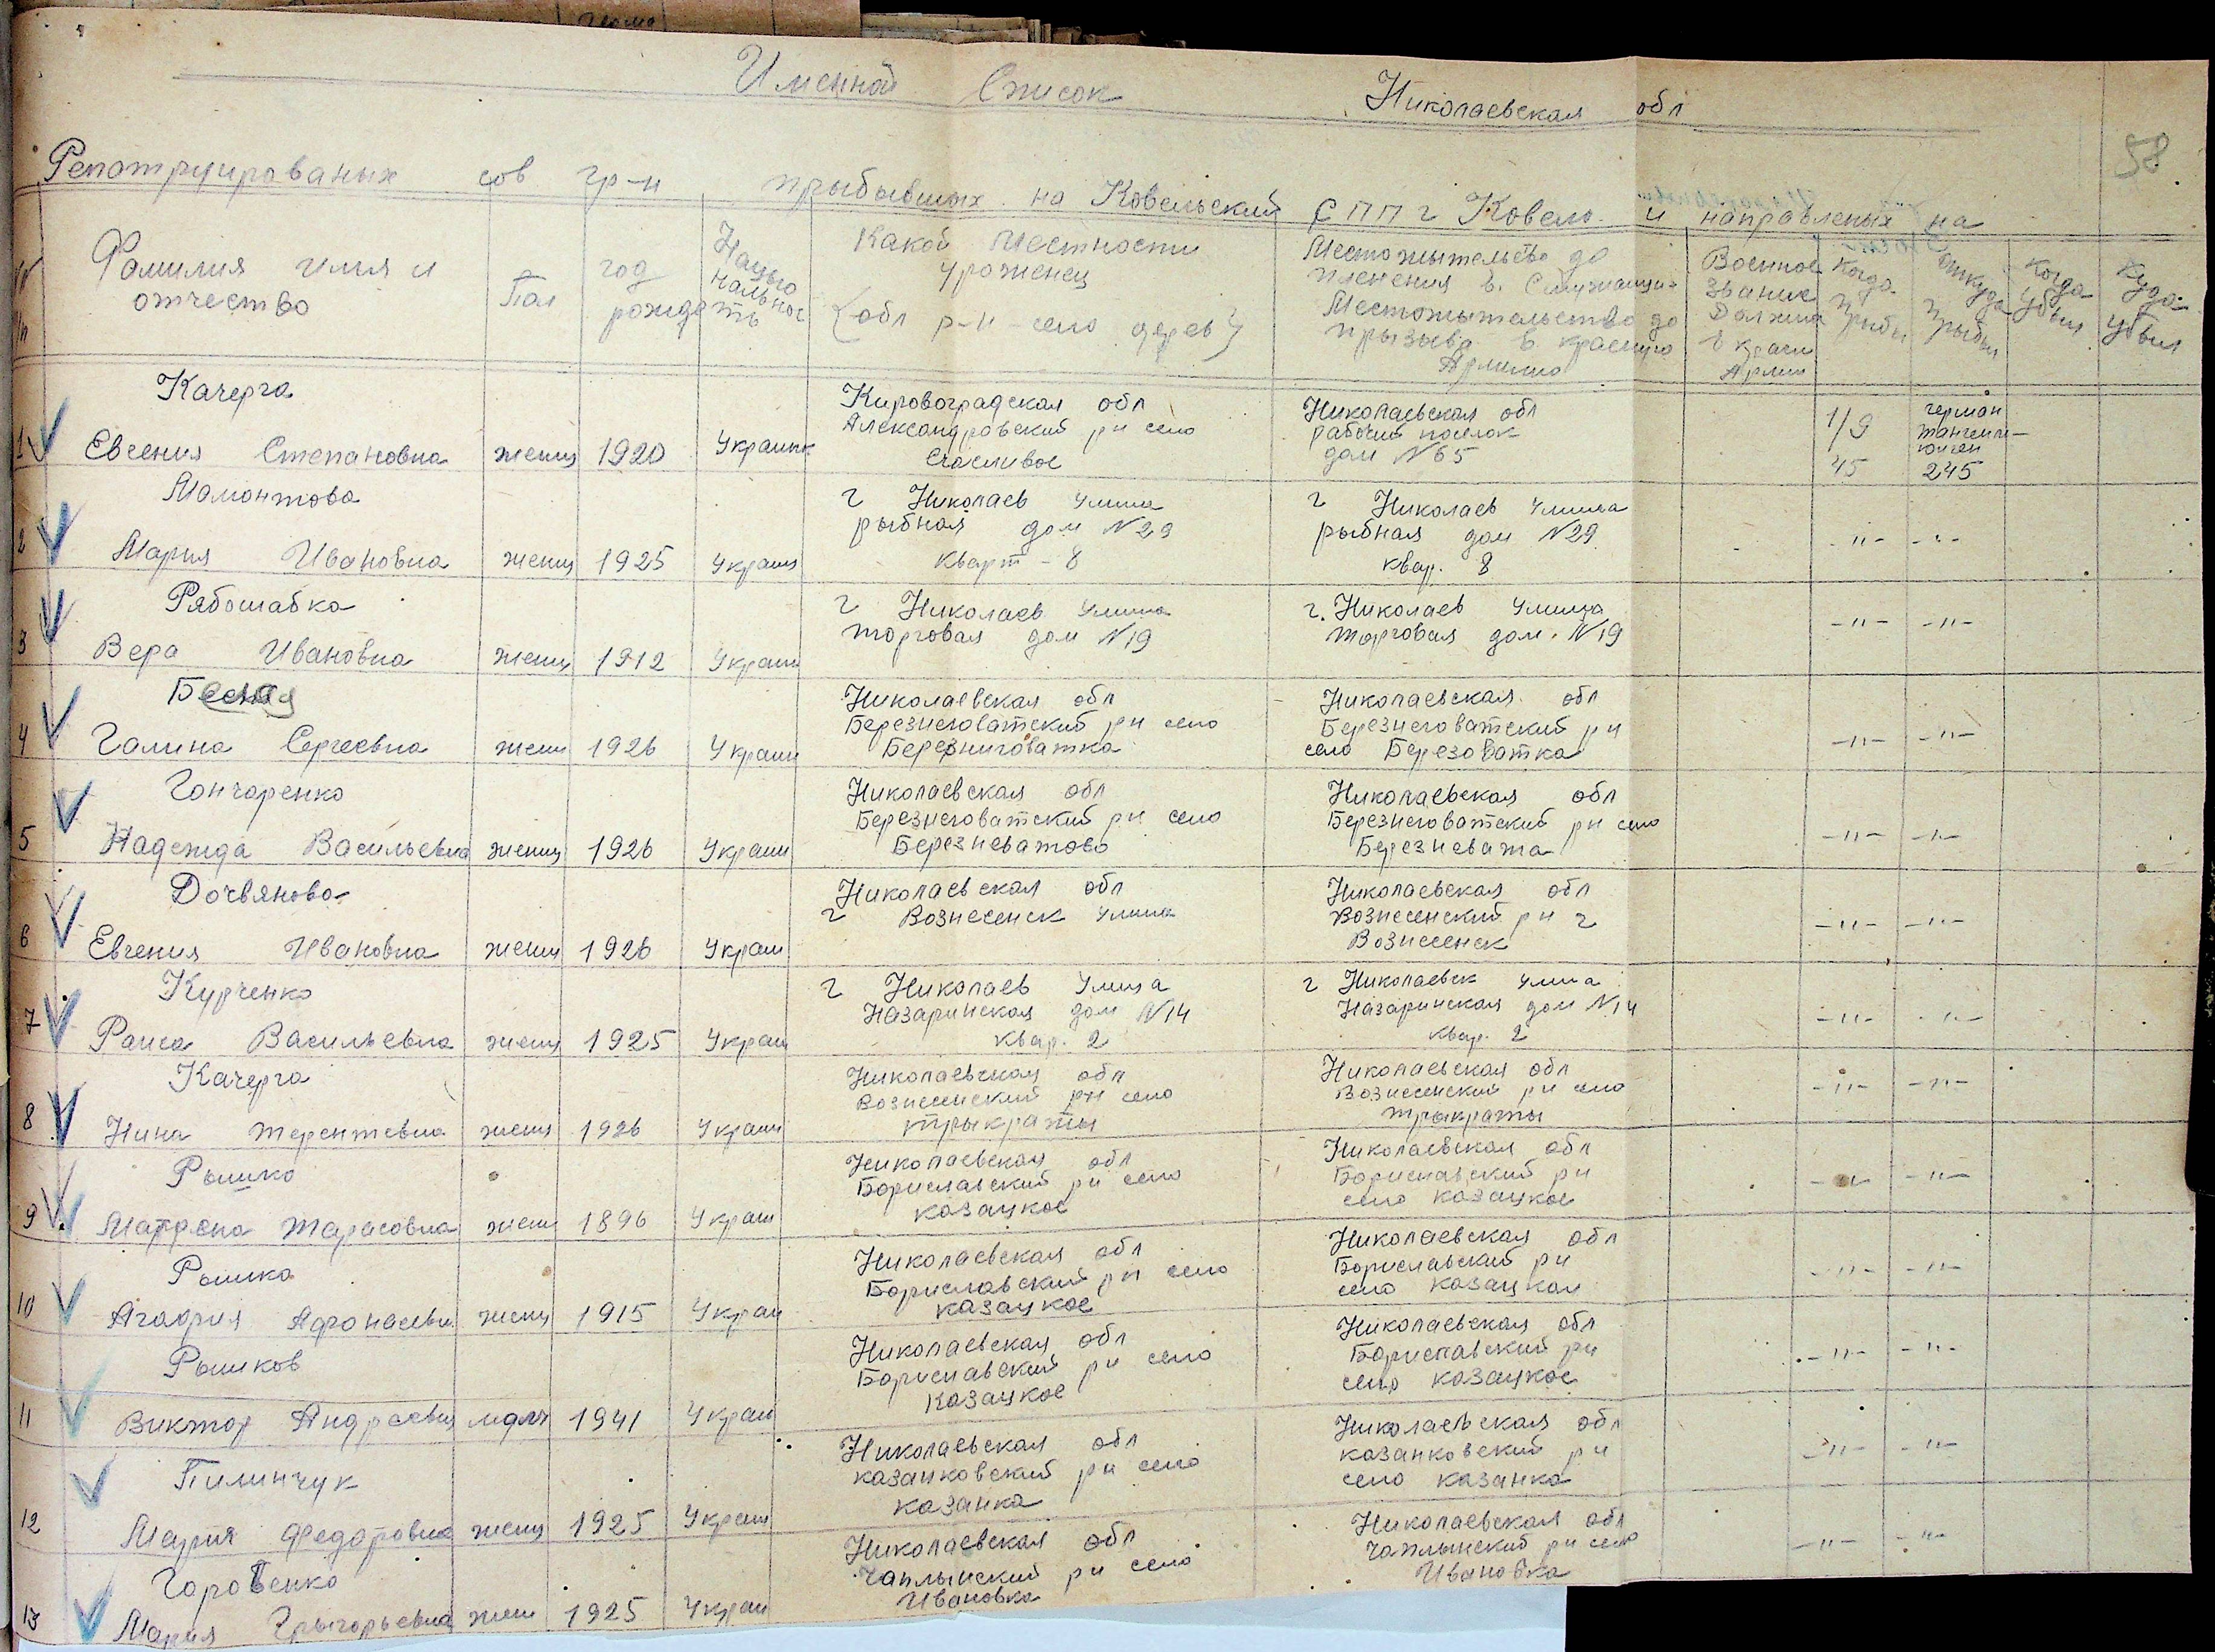 Именной Список Николаевская обл
58
Репотриированых сов гр-н прыбывшых на Ковельский СПП г Ковель и направленых на
№ п/п
Фамилия имя и отчество
Пол
год рожде
Нацыо нальнос ть
Какой местности уроженец {обл р-н село дерев}
Местожытельство до пленения в. Служащи-
Местожытельство до прызыва в красную Армию
Военное звание Должно в красн Армии
Когда прибы
Откуда прыбыл
Когда убыл
Куда убыл
Качерга
Кировоградская обл
Николаевская обл
герман
1 Евгения Степановна женщ 1920 Украинк
Александровский рн село
рабочий поселок
1/9
Счасливое
дом №65
45
245
Мамонтова
г Николаев Улица
г Николаев Улица
рыбная дом №29
рыбная дом №29
-"- -"-
2 Мария Ивановна женщ 1925 Украин
Кварт - 8
квар. 8
Рябошабка
г Николаев Улица
г. Николаев Улица
3 Вера Ивановна женщ 1912 Украин
торговая дом №19
торговая дом. №19
-"- -"-
Николаевская обл
Николаевская обл
4 Галина Сергеевна женщ 1926 Украин
Березнеговатский рн село
Березнеговатский рн
-"- -"-
Березниговатка
село Березоватка
Гончаренко
Николаевская обл
Николаевская обл
5 Надежда Васильевна женщ 1926 Украин
Березнеговатский рн село
Березнеговатский рн село
-"- -"-
Березневатово
Березневата
Дочвянова
Николаевская обл
Николаевская обл
6 Евгения Ивановна женщ 1926 Украи
г Вознесенск Улица
Вознесенский рн г
-"- -"-
Вознесенск
Курченко
г Николаев Улица
г Николаевск Улица
7 Раиса Васильевна женщ 1925 Украи
Назаринская дом №14
Назаринская дом №14
-"- -"-
квар. 2
квар. 2
Качерга
Николаевская обл
Николаевская обл
8 Нина Терентевна женщ 1926 Украин
Вознесенский рн село
Вознесенский рн село
-"- -"-
трыкраты
трыкраты
Рышко
Николаевская обл
Николаевская обл
9 Матрена Тарасовна женщ 1896 Украи
Бориславский рн село
Бориславский рн
-"- -"-
казацкое
село казацкое
Рышко
Николаевская обл
Николаевская обл
10 Агафия Афонасевн женщ 1915 Украи
Бориславский рн село
Бориславский рн
-"- -"-
казацкое
село казацкое
Рышков
Николаевская обл
Николаевская обл
11 Виктор Андреевич малч 1941 Украи
Бориславский рн село
Бориславский рн
-"- -"-
Казацкое
село казацкое
Пилипчук
Николаевская обл
Николаевская обл
12 Мария Федоровна женщ 1925 Украи
казанковский рн село
казанковский рн
-"- -"-
казанка
село казанка
Горовенко
Николаевская обл
Николаевская обл
13 Мария Грыгорьевна жен 1925 Украи
Чаплынский рн село
Чаплынский рн село
-"- -"-
Ивановка
Ивановка